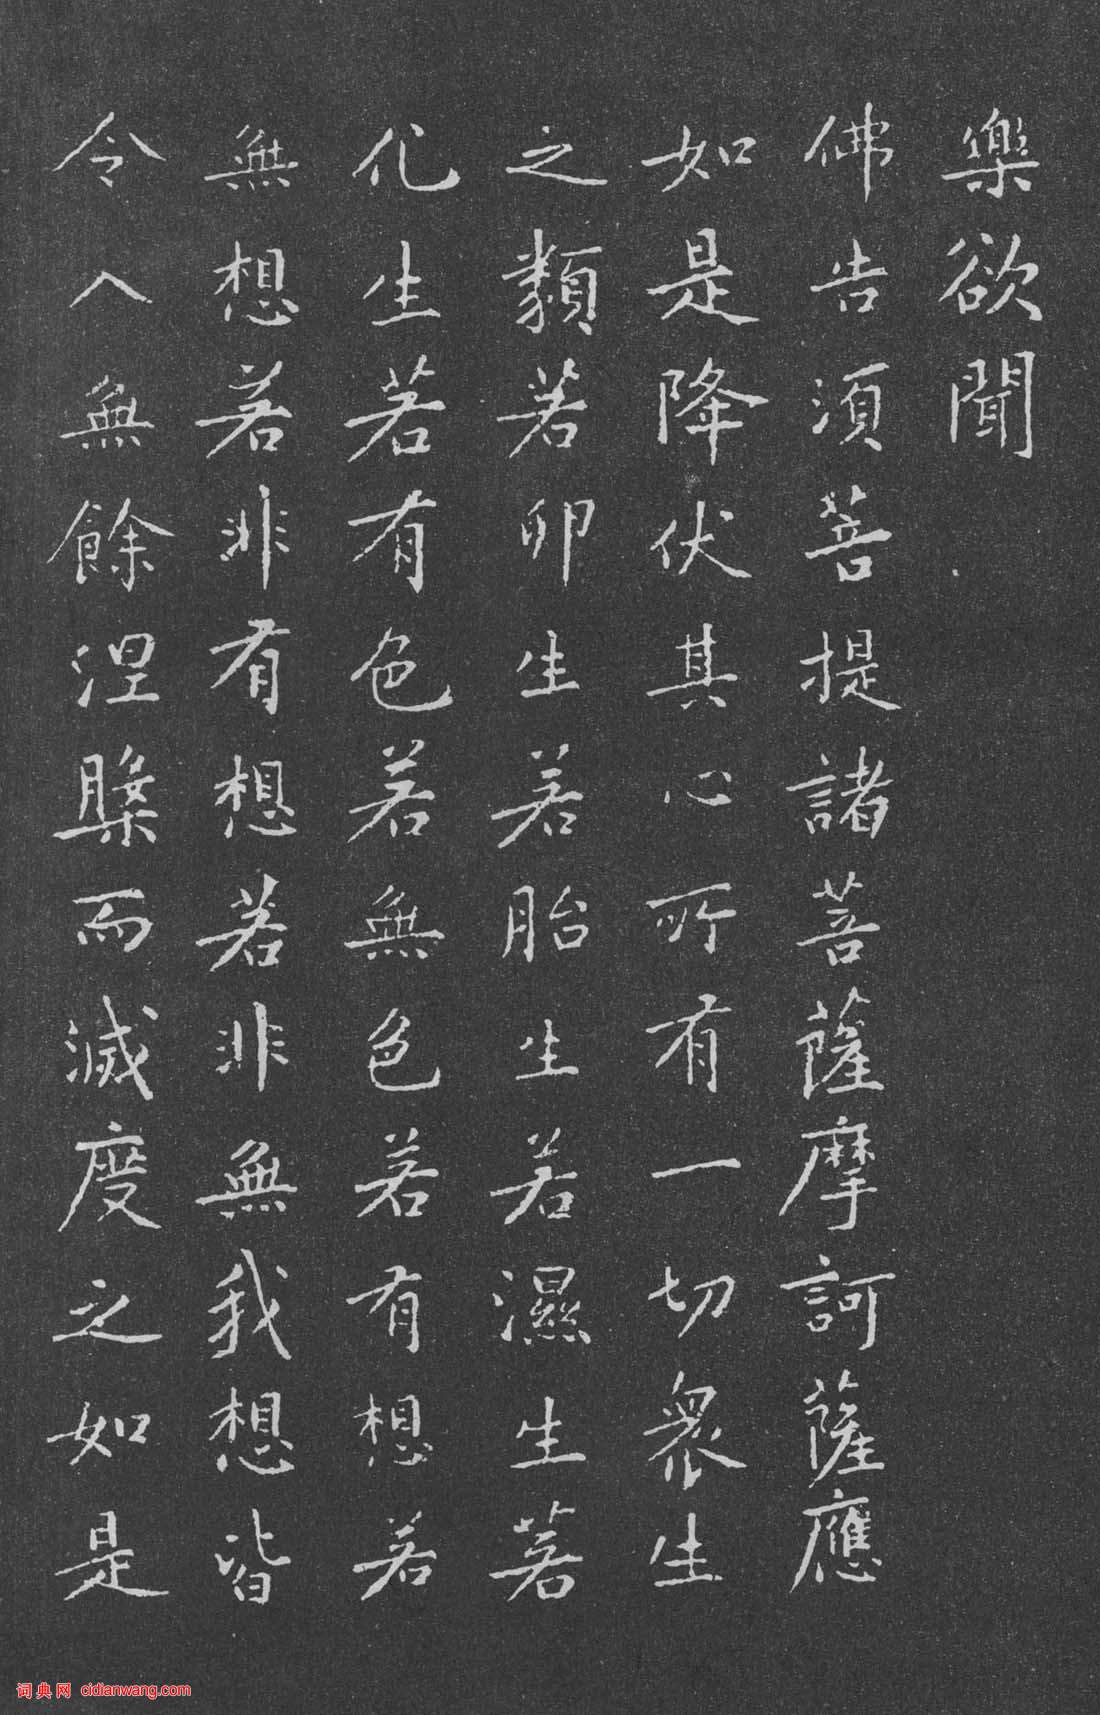 樂欲聞
佛告須菩提諸菩薩摩訶薩應
如是降伏其心所有一切眾生
之類若卵生若胎生若濕生若
化生若有色若無色若有想若
無想若非有想若非無我想皆
令入無餘涅槃而滅度之如是
词典网 cidianwang.com